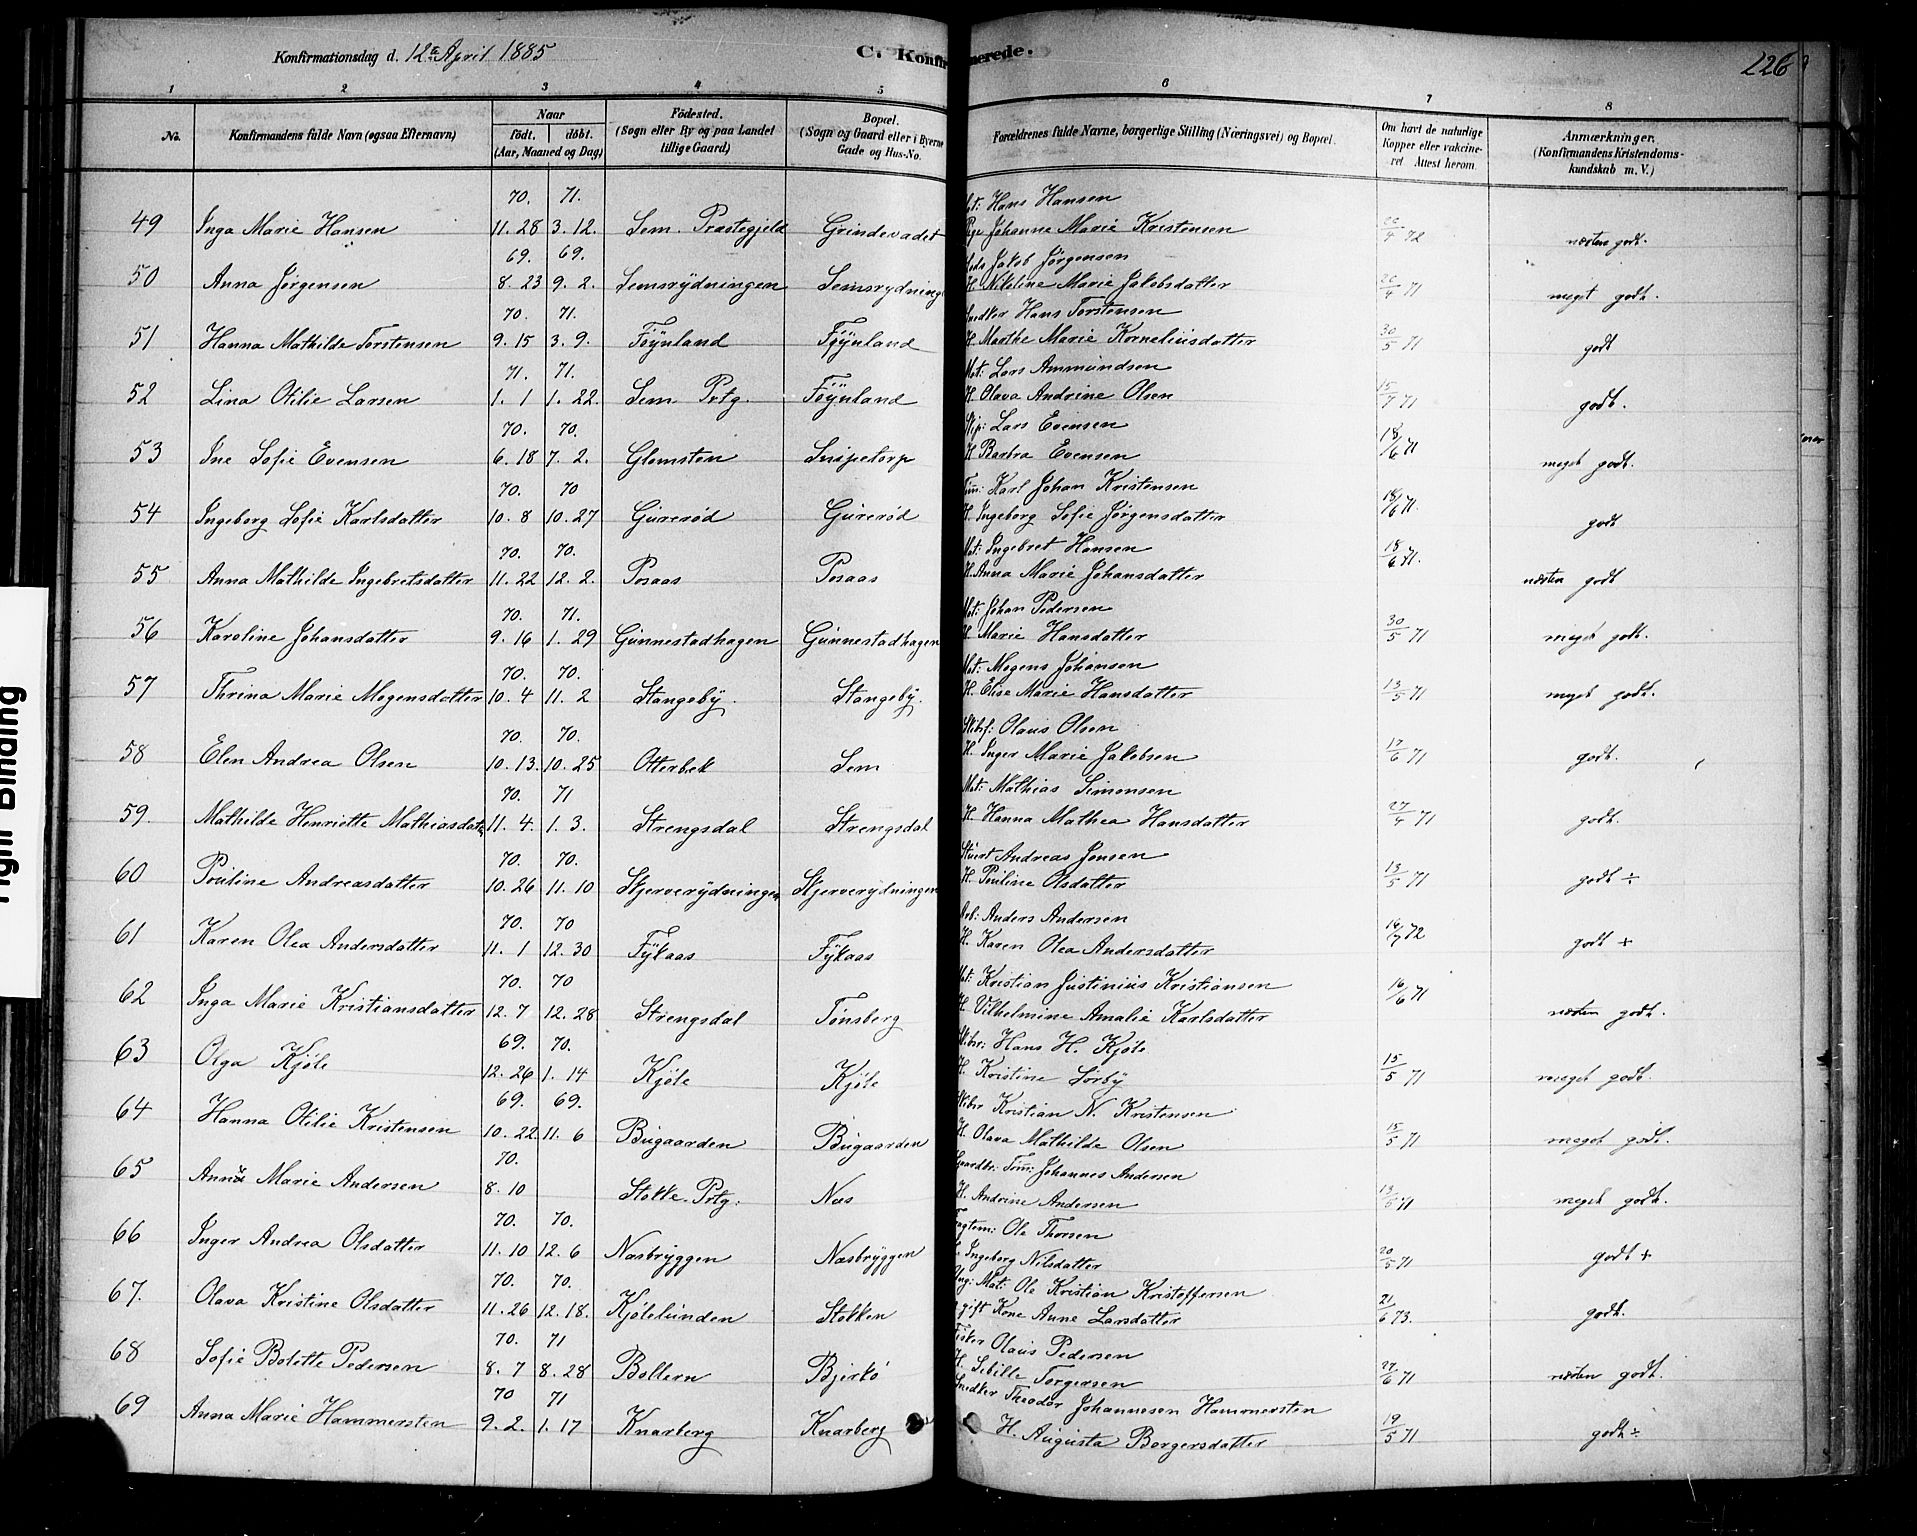 Konfirmationsdag d. 12te April 1885
C. Konfirmerede.
226
1 2 3 4 5 6 7 8
No. Konfirmandens fulde Navn (ogsaa Efternavn) Naar födt. döbt. (Aar, Maaned og Dag) Födested. (Sogn eller By og paa Landet tillige Gaard) Bopæl. (Sogn og Gaard eller i Byerne Gade og Hus-No. Forældrenes fulde Navne, borgerlige Stilling (Næringsvei) og Bopæl. Om havt de naturlige Kopper eller vakcineret Attest herom. Anmærkninger. (Konfirmandens Kristendomskundskab m. V.)
70. 71. Mat: Hans Hansen
49 Inga Marie Hansen 11. 28 3. 12. Sem Præstegjeld Grindevadet Pige Johanne Marie Kristensen 20/4 72 næsten godt.
69. 69. Jakob Jørgensen
50 Anna Jørgensen 8. 23 9. 2. Semsrydningen Semsrydning H. Nikoline Marie Jakobsdatter 26/4 71 meget godt.
70. 71. Snedker Hans Torstensen
51 Hanna Mathilde Torstensen 9. 15 3. 9. Føynland Føynland H. Marthe Marie Korneliusdatter 30/5 71 godt
71. 71. Mat: Lars Ammundsen
52 Lina Otilie Larsen 1. 1 1. 22. Sem Prtg. Føynland H. Olava Andrine Olsen 15/7 71 godt.
70. 70. Skip: Lars Evensen
53 Ine Sofie Evensen 6. 18 7. 2. Glomsten Snipetorp H. Barbra Evensen 18/6 71 meget godt.
70. 70 Tøm: Karl Johan Kristensen
54 Ingeborg Sofie Karlsdatter 10. 8 10. 27 Gurerød Gurerød H. Ingeborg Sofie Jørgensdatter 18/6 71. godt
70. 70. Mat: Ingebret Hansen
55 Anna Mathilde Ingebretsdatter 11. 22 12. 2. Posaas Posaas H. Anna Marie Johansdatter 18/6 71. næsten godt
70. 71. Mat: Johan Pedersen
56 Karoline Johansdatter 9. 16 1. 29 Gunnestadhagen Gunnestadhagen H. Marie Hansdatter 30/5 71 meget godt.
70. 70. Mat: Mogens Johansen
57 Thrina Marie Mogensdatter 10. 4 11. 2 Stangeby. Stangeby. H. Elise Marie Hansdatter 13/5 71 meget godt.
70. 70. Skibsf: Olaus Olsen
58 Elen Andrea Olsen 10. 13. 10. 25 Otterbek Sem H. Inger Marie Jakobsen 17/6 71 godt.
70. 71 Mat: Mathias Simonsen
59. Mathilde Henriette Mathiasdatter 11. 4. 1. 3. Strengsdal Strengsdal H Hanna Mathea Hansdatter 27/4 71 godt.
70. 70. Stuert Andreas Jensen
60 Pouline Andreasdatter 10. 26 11. 10 Skjerverydningen Skjerverydningen H. Pouline Olsdatter 13/5 71 godt ÷
70. 70 Arb: Anders Andersen
61 Karen Olea Andersdatter 11. 1 12. 30 Fykaas Fykaas H. Karen Olea Andersdatter 16/7 72 godt +
70. 70 Mat: Kristian Justinius Kristiansen
62 Inga Marie Kristiansdatter 12. 7 12. 28 Strengsdal Tønsberg H. Vilhelmine Amalie Karlsdatter 16/6 71 næsten godt.
69. 70. Skibsr: Hans H. Kjøle
63 Olga Kjøle 12. 26 1. 14 Kjøle Kjøle H. Kristine Sørby 15/5 71 meget godt.
69. 69. Skibsr Kristian N. Kristensen
64 Hanna Otilie Kristensen 10. 22. 11. 6 Bugaarden Bugaarden H. Olava Mathilde Olsen 15/5 71 meget godt.
70. Gaardbr: Tøm: Johannes Andersen
65 Anna Marie Andersen 8. 10 Stokke Prtg. Nes H. Andrine Andersen 13/6 71 meget godt.
70. 70. Ole Thorsen
66 Inger Andrea Olsdatter 11. 10 12. 6 Nesbryggen Nesbryggen H. Ingeborg Nilsdatter 20/5 71 godt +
70. 70. Ung: Mat: Ole Kristian Kristoffersen
67. Olava Kristine Olsdatter 11. 26 12. 18. Kjølelunden Stokken gift Kone Anne Larsdatter 21/6 73. godt.
70. 71 Fisker Olaus Pedersen
68 Sofie Bolette Pedersen 8. 7 8. 28 Bollern Bjerkø H. Sebille Torgersen 27/6 71 næsten godt.
70 71 Snedker Theodor Johannesen Hammersten
69 Anna Marie Hammersten 9. 2. 1. 17 Knarberg Knarberg H. Augusta Borgersdatter 19/5 71 godt ÷
Tight Binding